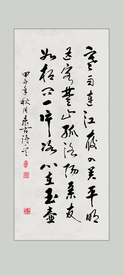 寒雨連江夜入吴平明
送客楚山孤洛陽親友
如相问一片冰心在玉壶
年秋月